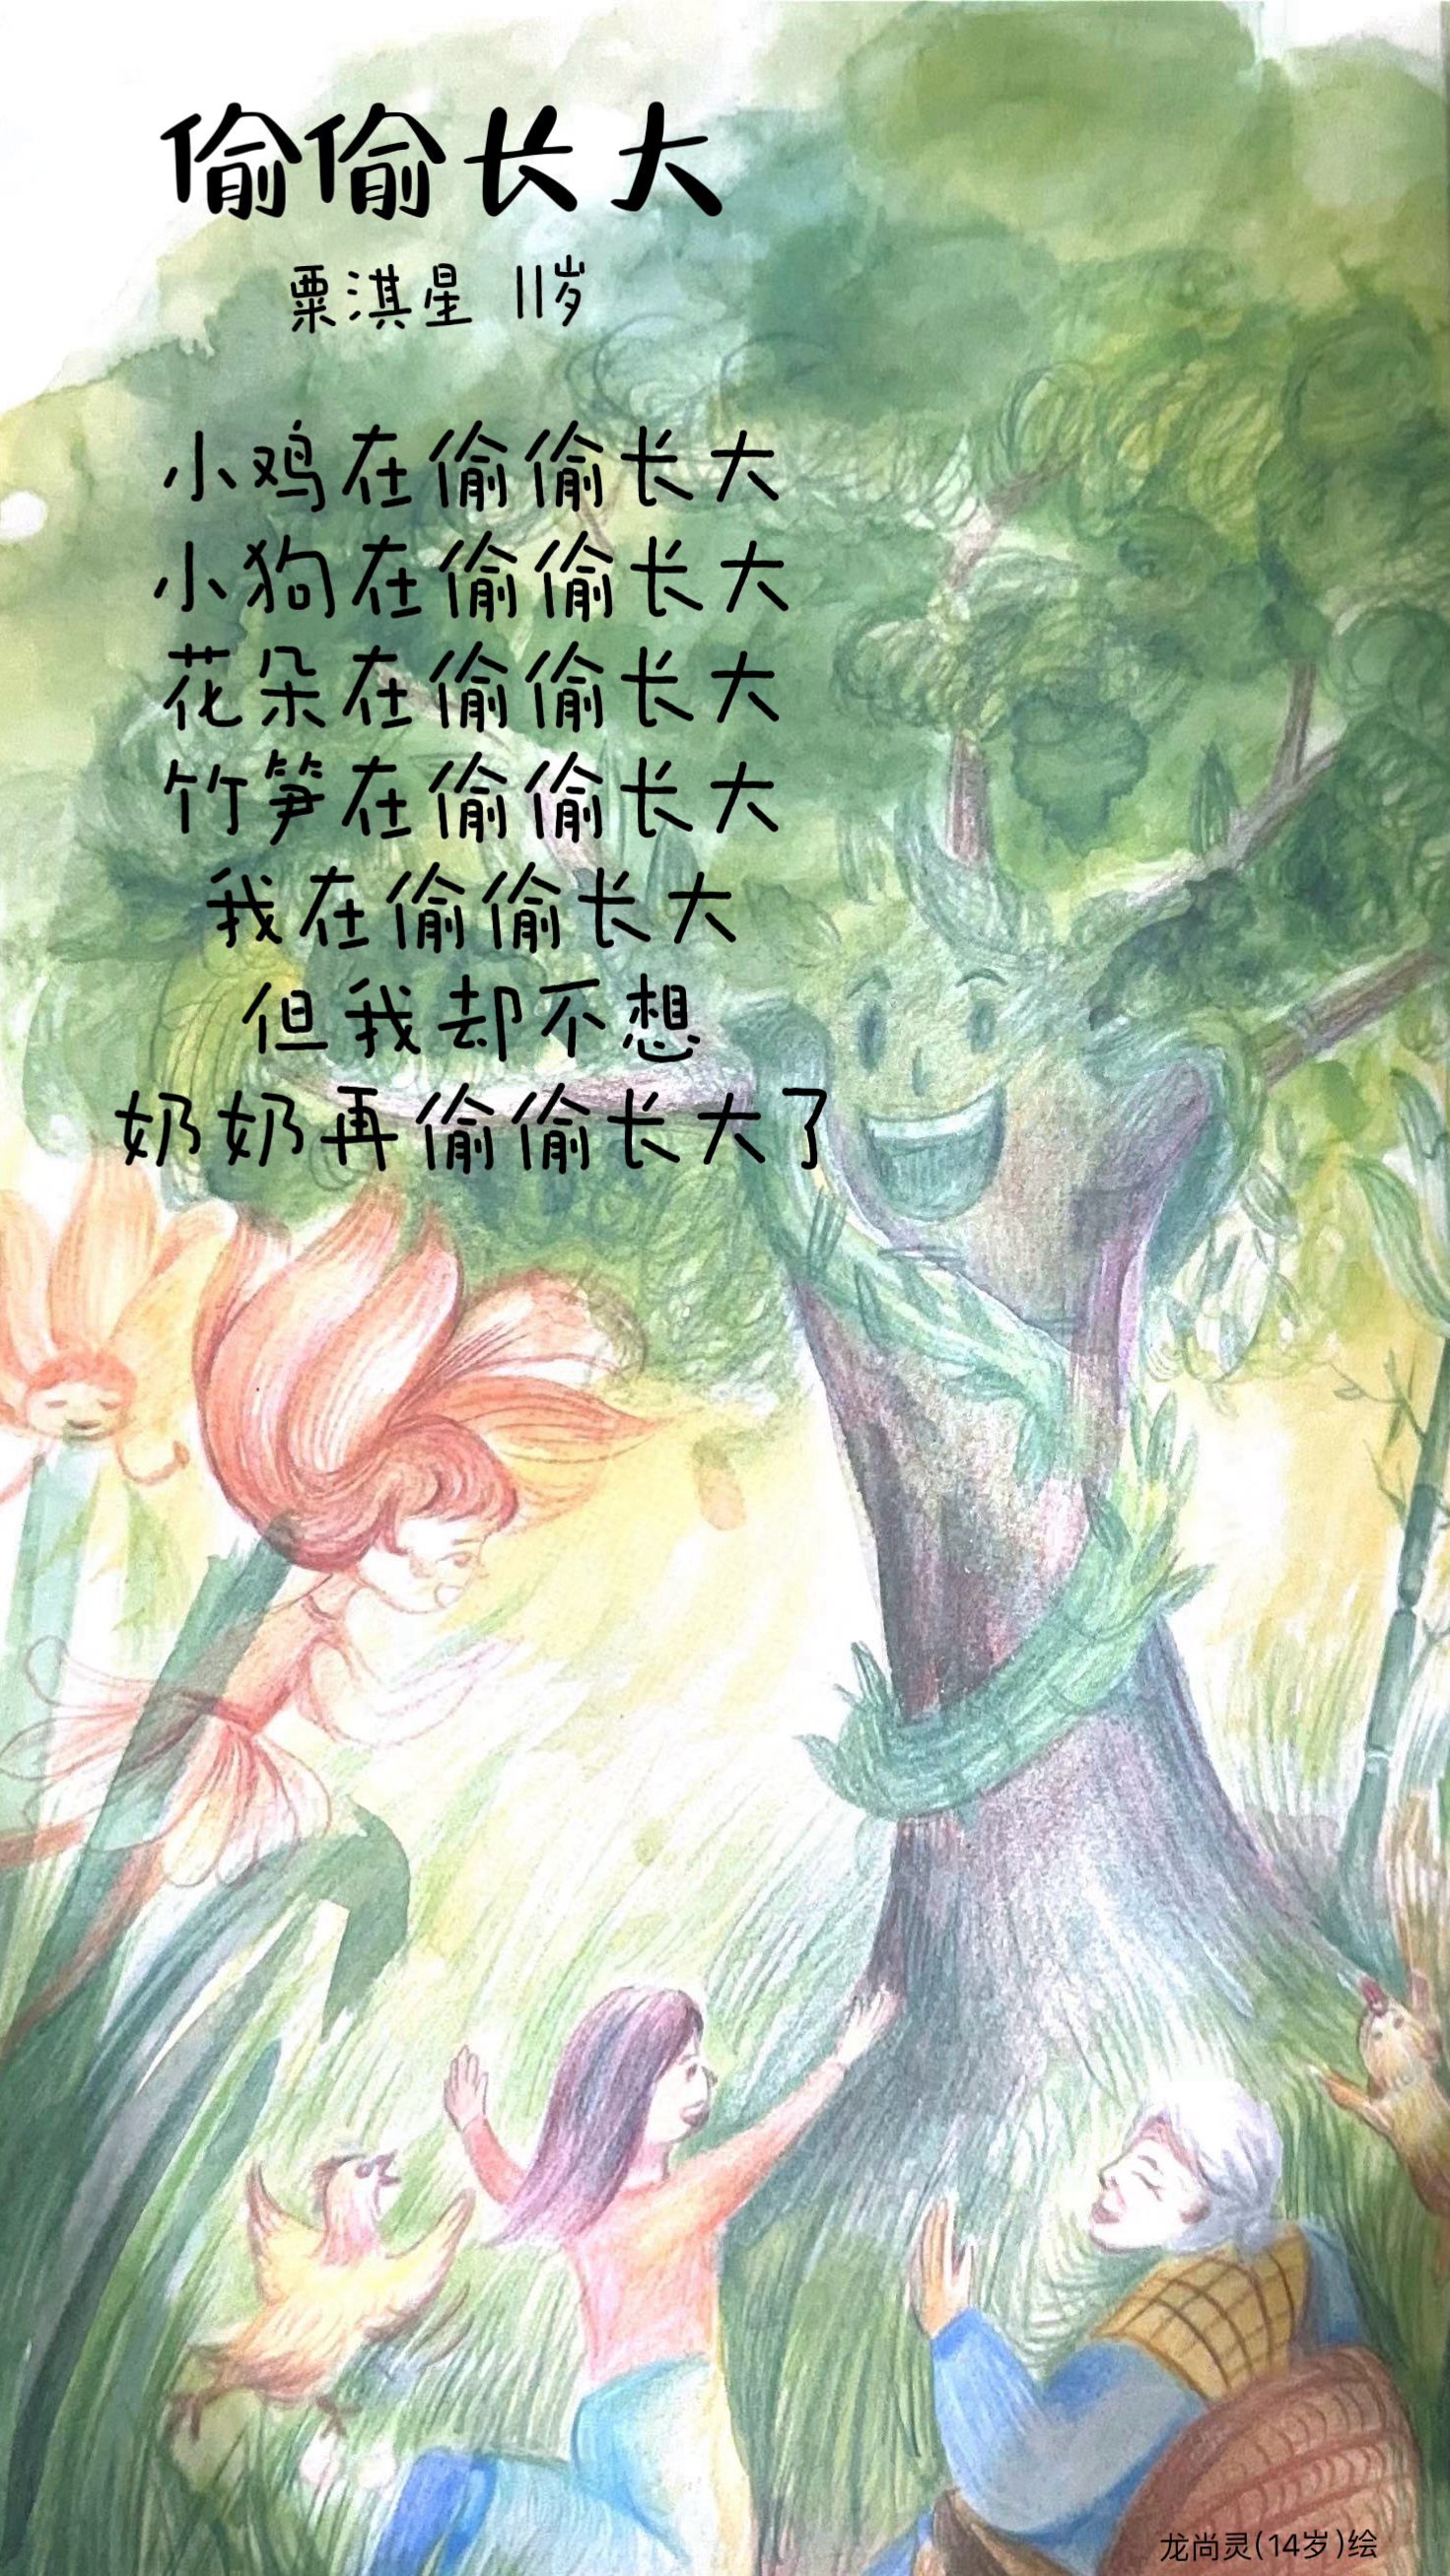 偷偷长大
粟淇星 11岁
小鸡在偷偷长大
小狗在偷偷长大
花朵在偷偷长大
竹笋在偷偷长大
我在偷偷长大
但我却不想
奶奶再偷偷长大了
龙尚灵(14岁)绘